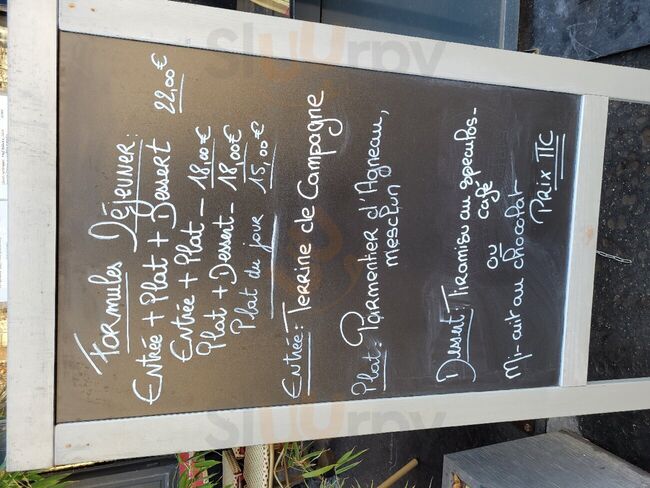 Formules Déjeuner:
Entrée + Plat + Dessert 22,00€
Entrée + Plat - 18,00€
Plat + Dessert - 18,00€
Plat du jour 15,00€
Entrée: Terrine de Campagne
Plat: Parmentier d'Agneau,
mesclun
Dessert: Tiramisu au speculos-
café
ou
Mi-cuit au chocolat
Prix TTC
Sluurpy
Sluurpy